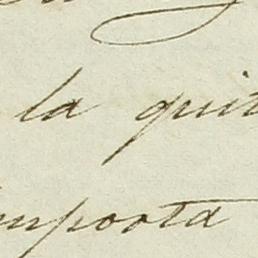 la quit
importa